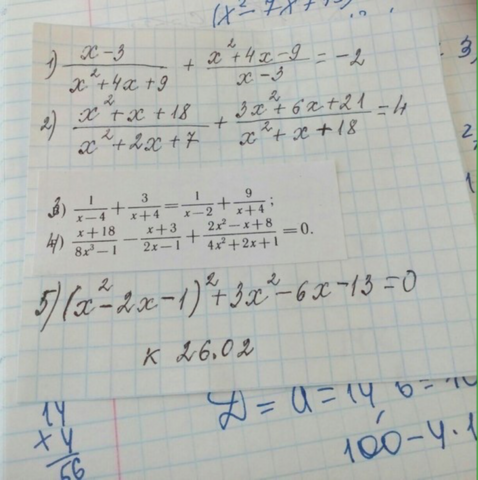 1) (x-3)/(x²+4x+9) + (x²+4x-9)/(x-3) = -2
2) (x²+x+18)/(x²+2x+7) + (3x²+6x+21)/(x²+x+18) = 4
3) 1/(x-4) + 3/(x+4) = 1/(x-2) + 9/(x+4);
4) (x+18)/(8x³-1) - (x+3)/(2x-1) + (2x²-x+8)/(4x²+2x+1) = 0.
5) (x²-2x-1)²+3x²-6x-13=0
к 26.02
14
x 4
56
D = a = 14
100-4·1